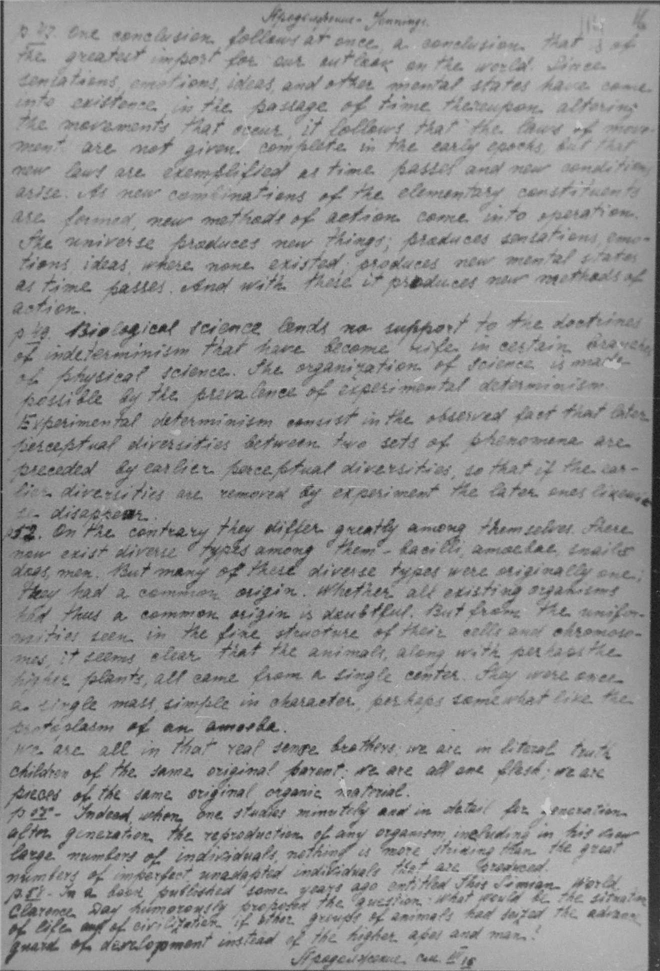 Продолжение - Jennings. 16
p 47. One conclusion follows at once, a conclusion that is of
the greatest import for our outlook on the world. Since
sensations, emotions, ideas, and other mental states have come
into existence in the passage of time thereupon altering
the movements that occur, it follows that the laws of move-
ment are not given complete in the early epochs, but that
new laws are exemplified as time passes and new conditions
arise. As new combinations of the elementary constituents
are formed, new methods of action come into operation.
The universe produces new things; produces sensations, emo-
tions, ideas, where none existed; produces new mental states
as time passes. And with these it produces new methods of
action.
p 49. Biological science lends no support to the doctrines
of indeterminism that have become rife in certain
of physical science. The organization of science is made
possible by the prevalence of experimental determinism.
Experimental determinism consist in the observed fact that later
perceptual diversities between two sets of phenomena are
preceded by earlier perceptual diversities, so that if the ear-
lier diversities are removed by experiment the later ones likewi-
se disappear.
p52. On the contrary they differ greatly among themselves. There
now exist diverse types among them - bacilli, amoebae, snails
dogs, men. But many of these diverse types were originally one;
they had a common origin. Whether all existing organisms
had thus a common origin is doubtful. But from the unifor-
mities seen in the fine structure of their cells and chromoso-
mes, it seems clear that the animals, along with perhaps the
higher plants, all came from a single center. They were once
a single mass, simple in character, perhaps somewhat like the
protoplasm of an amoeba.
We are all in that real sense brothers; we are in literal truth
children of the same original parent; we are all one flesh; we are
pieces of the same original organic material.
p - Indeed, when one studies minutely and in detail for generation
after generation the reproduction of any organism, including in his view
large numbers of individuals, nothing is more striking than the great
numbers of imperfect, unadapted individuals that are produced.
p. - In a book published some years ago entitled This Simian World
Clarence Day humorously proposed the question: what would be the situation
of life and of civilization if other groups of animals had seized the advance
guard of development instead of the higher apes and man!
Продолжение см.